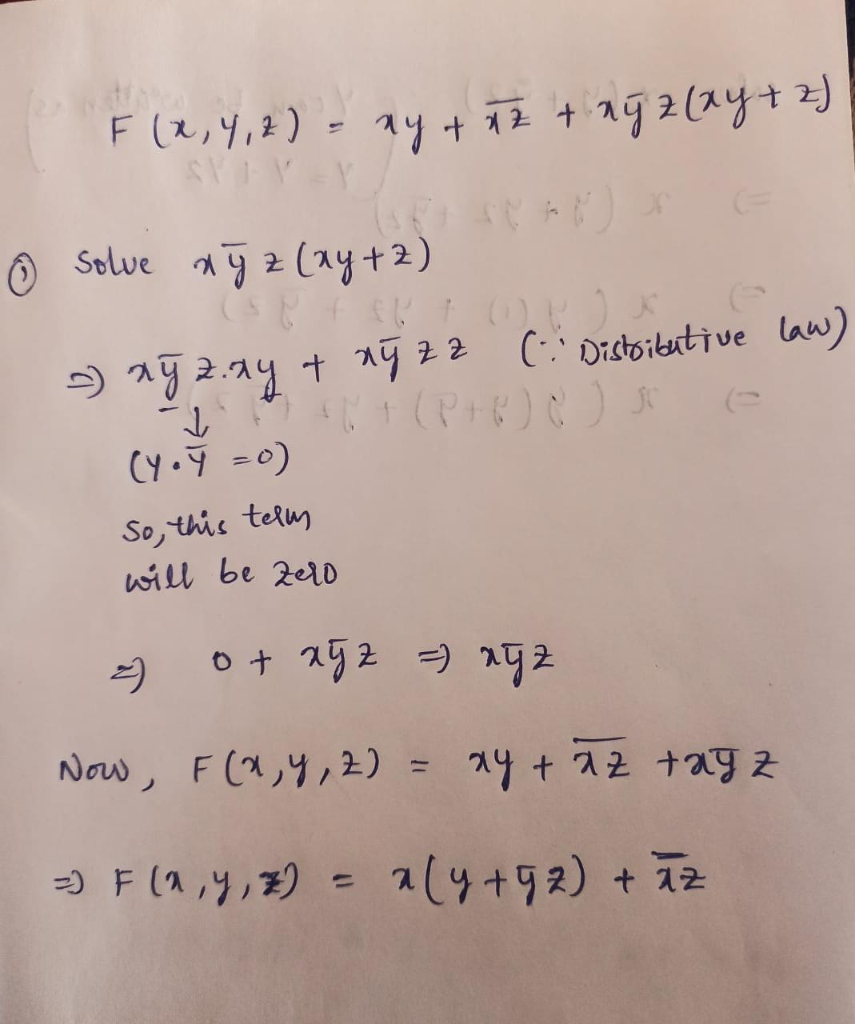 F (x, y, z) = xy + x̅z̅ + xȳ z(xy + z)
① Solve xȳ z (xy + z)
⇒ xȳ z.xy + xȳ z z (∵ Distributive law)
↓
(y.ȳ = 0)
So, this term
will be zero
⇒ 0 + xȳz ⇒ xȳz
Now, F (x, y, z) = xy + x̅z̅ + xȳ z
⇒ F (x, y, z) = x(y + ȳz) + x̅z̅